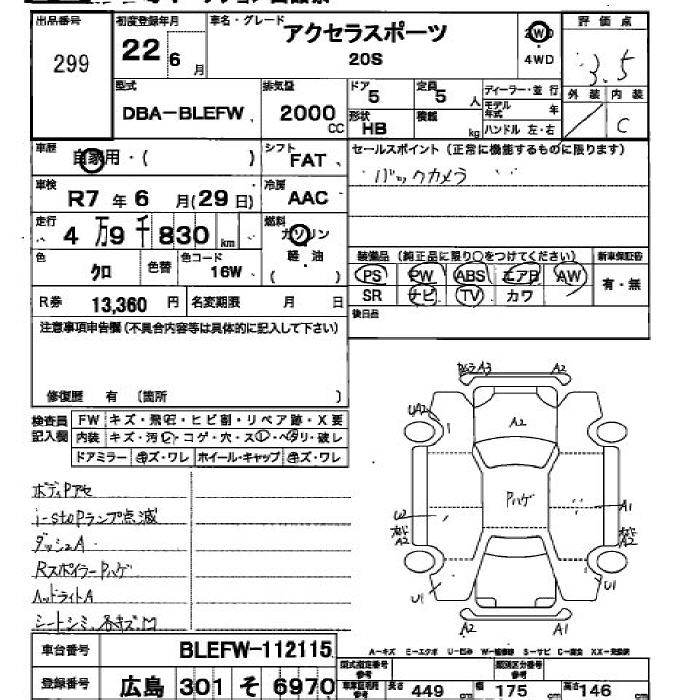 出品番号 初度登録年月 車名・グレード 評価点
299 22 6 月 アクセラスポーツ 2WD 3.5
20S 4WD
型式 排気量 ドア 定員 ディーラー・並行 外装 内装
DBA-BLEFW 2000 CC 5 5 人 モデル年式 年 C
形状 HB 積載 kg ハンドル 左・右
車歴 自家用・( ) シフト FAT セールスポイント (正常に機能するものに限ります)
バックカメラ
車検 R7 年 6 月(29日) 冷房 AAC
走行 4万9千830 km 燃料 ガソリン 軽・油 ( )
装備品 (純正品に限り○をつけてください) 新車保証書
色 クロ 色替 色コード 16W PS PW ABS エアB AW 有・無
R券 13,360 円 名変期限 月 日 SR ナビ TV カワ
後日品
注意事項申告欄 (不具合内容等は具体的に記入して下さい)
修復歴 有 (箇所 )
A3 A2
UA2
A2
Pハゲ
A1
A2
A2
U1 U1
A2 A1
検査員記入欄 FW キズ・飛石・ヒビ割・リペア跡・X要
内装 キズ・汚レ・コゲ・穴・スレ・ベタリ・破レ
ドアミラー キズ・ワレ ホイール・キャップ キズ・ワレ
ボディPアセ
i-stopランプ点滅
ダッシュA
RスポイラーPハゲ
ヘッドライトA
車台番号 BLEFW-112115
A-キズ E-エクボ U-凹ミ W-補修跡 S-サビ C-腐食 XX-交換跡
登録番号 広島 301 そ 6970
型式指定番号 参考 類別区分番号 参考
長さ 449 cm 幅 175 cm 高さ 146 cm